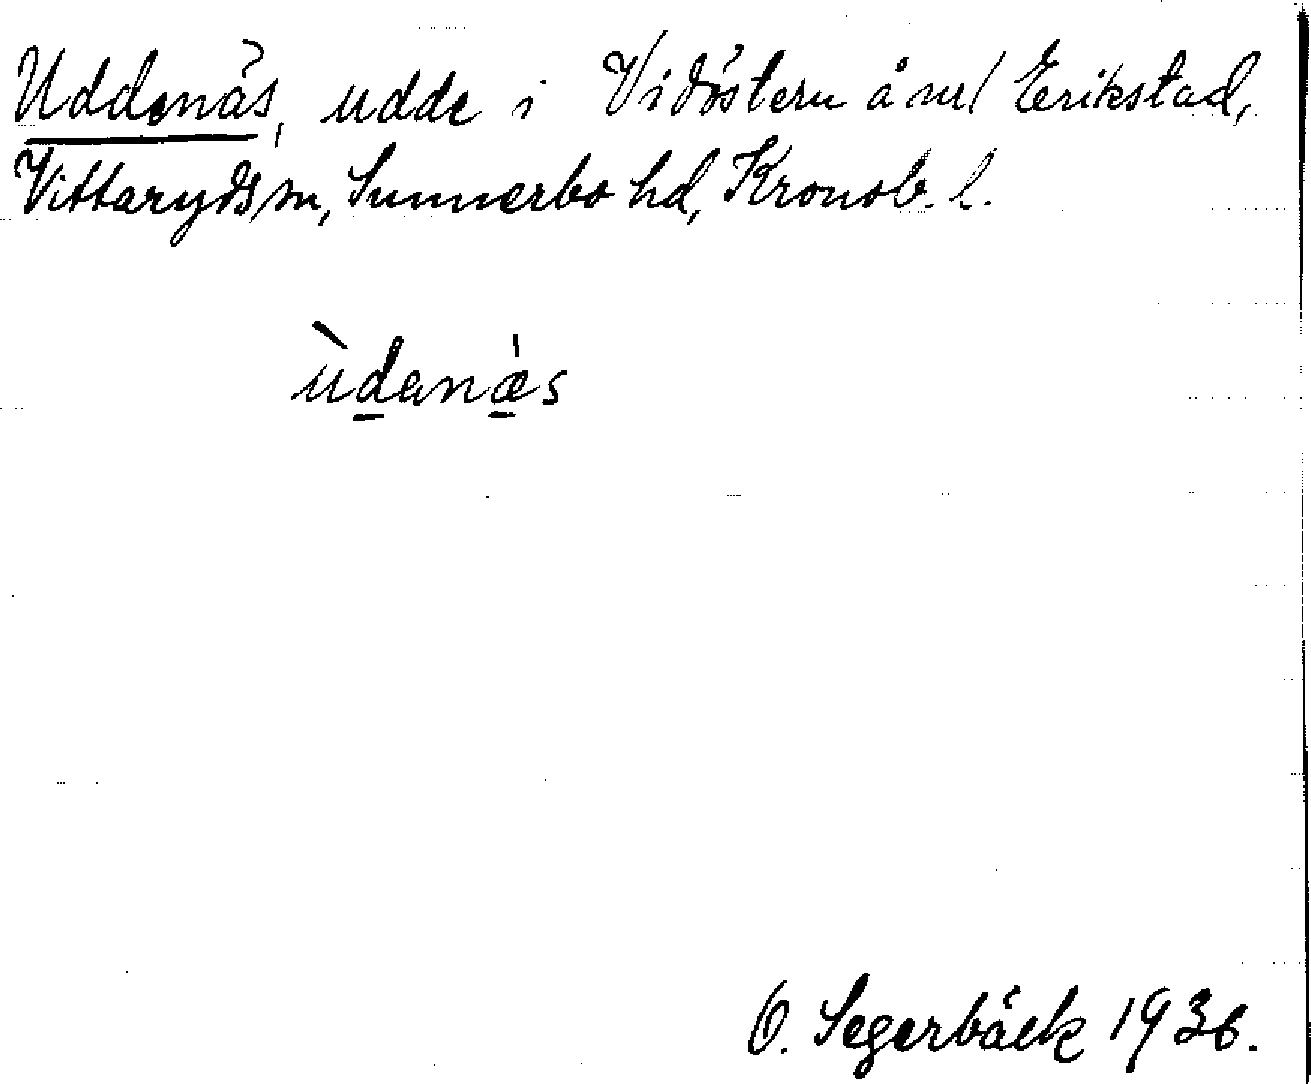 Uddenäs, udde i Vidöstern å m/ Erikstad,
Vittaryds sn, Sunnerbo hd, Kronob. l.
ùdanæ̀s
O. Segerbäck 1936.